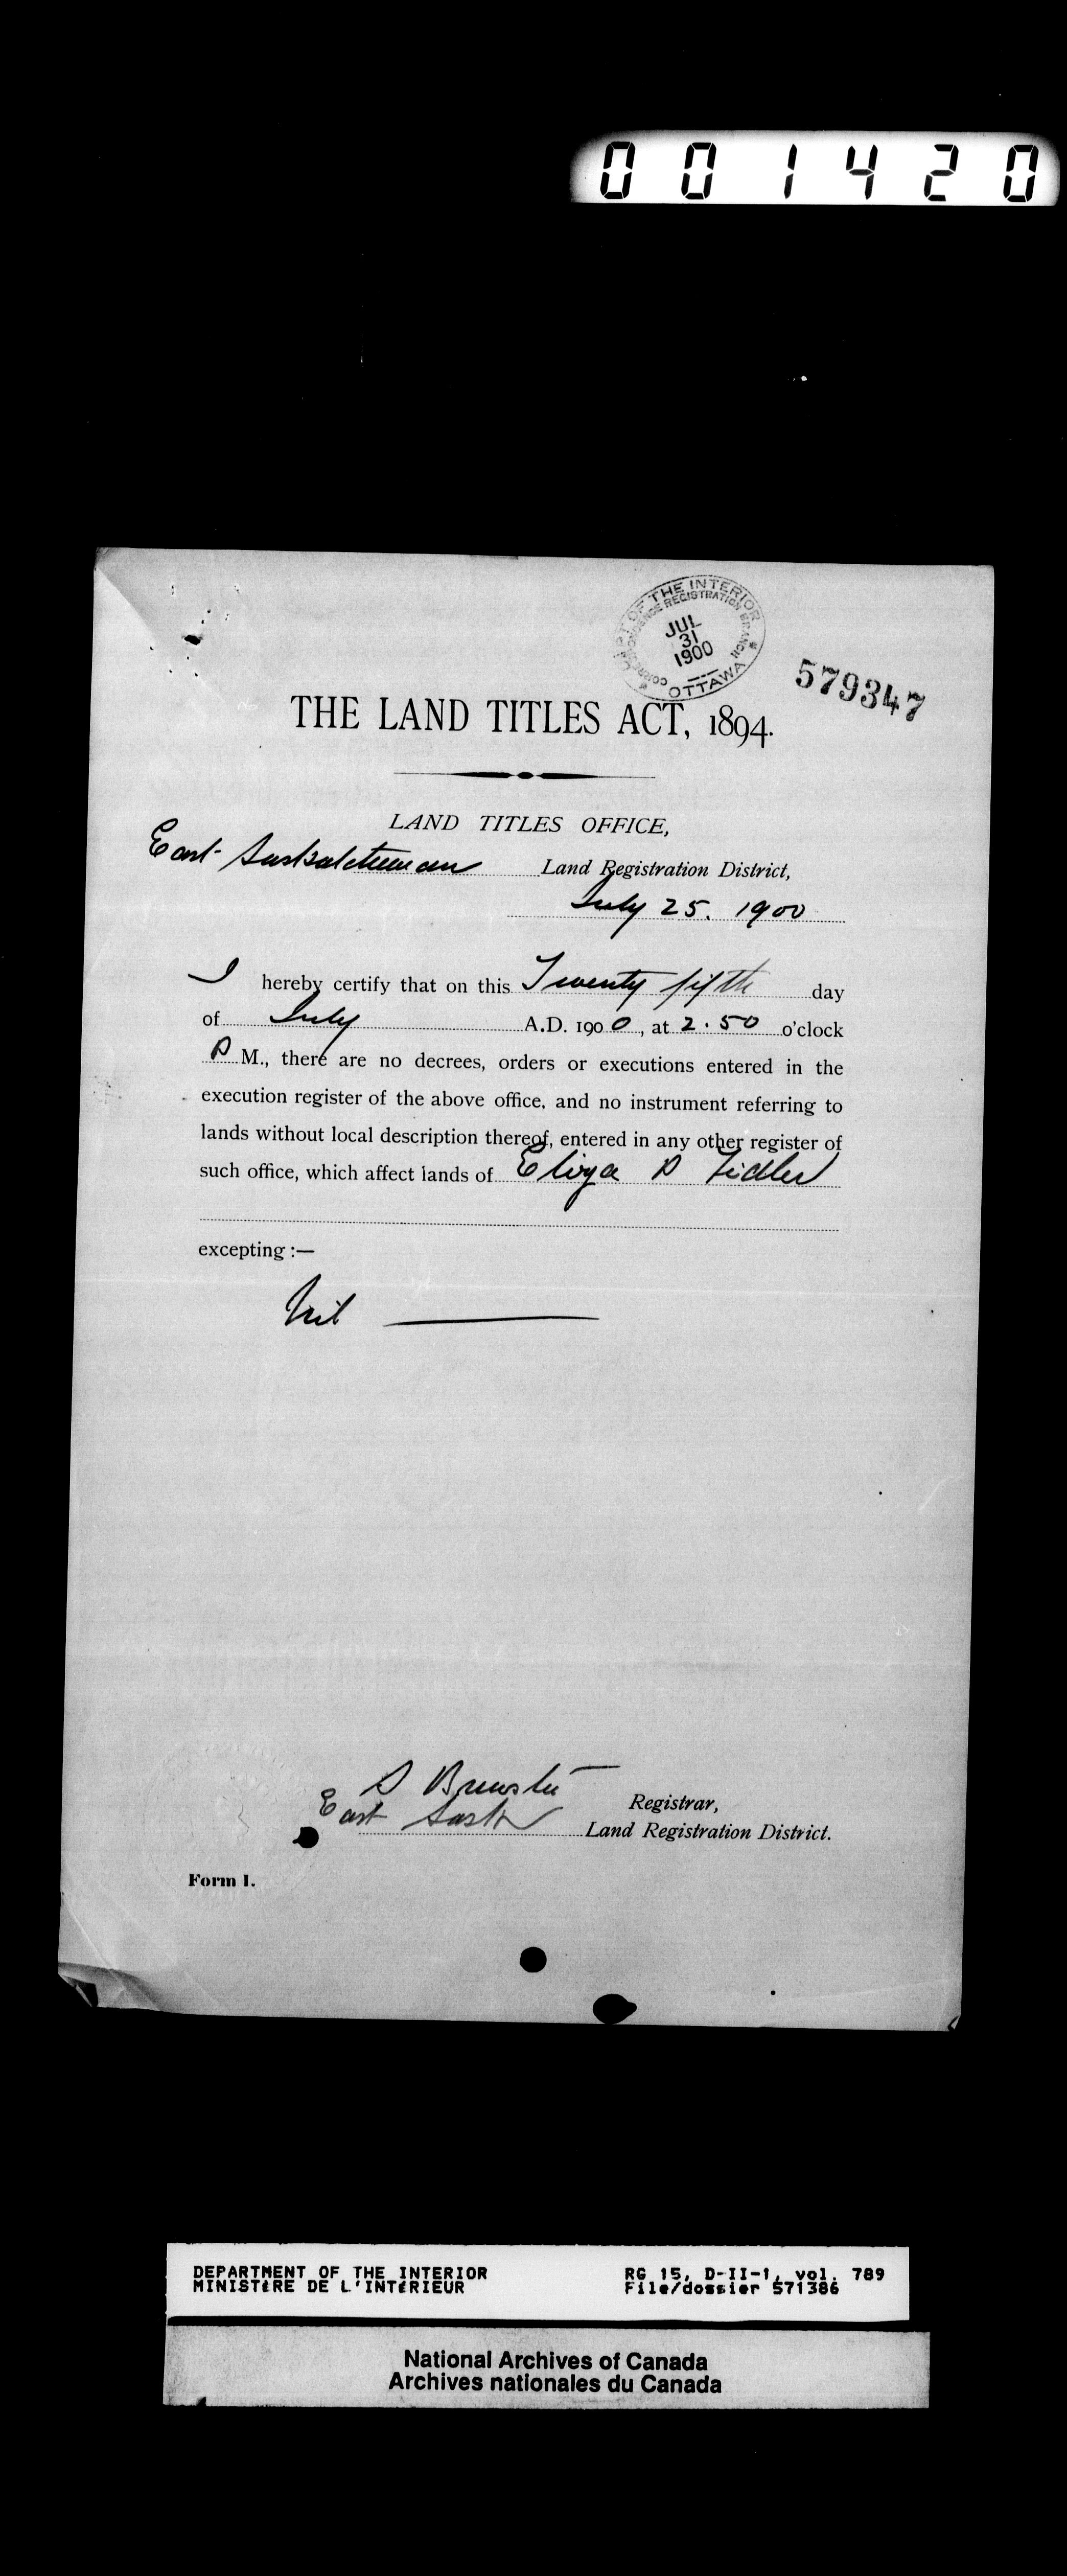 001420
DEPT OF THE INTERIOR
CORRESPONDENCE REGISTRATION BRANCH
JUL
31
1900
OTTAWA
579347
THE LAND TITLES ACT, 1894.
LAND TITLES OFFICE,
East Saskatchewan Land Registration District,
July 25. 1900
I hereby certify that on this Twenty fifth day
of July A.D. 1900, at 2.50 o'clock
P M., there are no decrees, orders or executions entered in the
execution register of the above office, and no instrument referring to
lands without local description thereof, entered in any other register of
such office, which affect lands of Eliza P Fidler
excepting :—
Nil
S Brewster
Registrar,
East Sask Land Registration District.
Form I.
DEPARTMENT OF THE INTERIOR RG 15, D-II-1, vol. 789
MINISTÈRE DE L'INTÉRIEUR File/dossier 571386
National Archives of Canada
Archives nationales du Canada